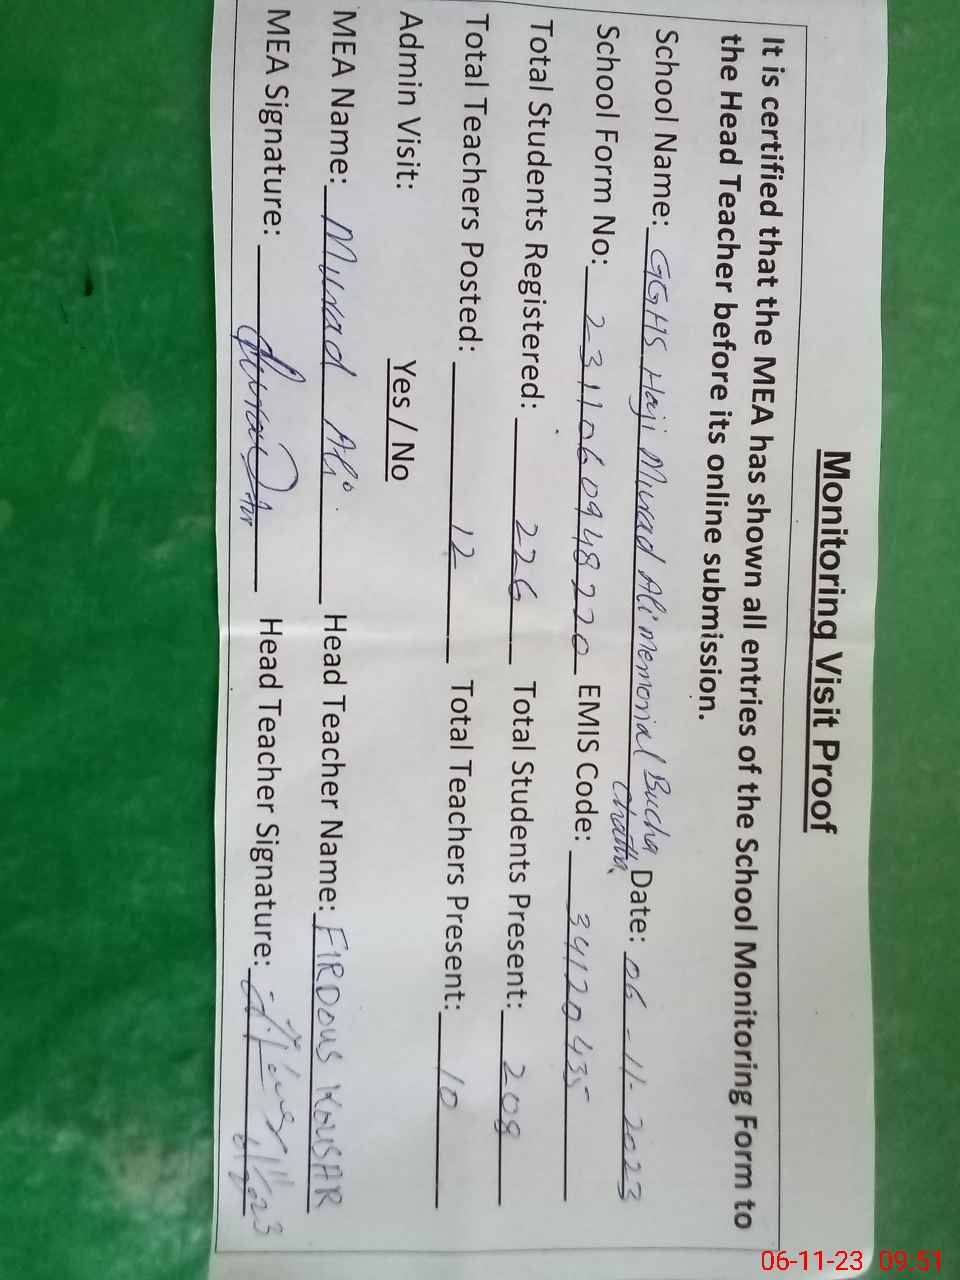 Monitoring Visit Proof
It is certified that the MEA has shown all entries of the School Monitoring Form to
the Head Teacher before its online submission.
School Name: GGHS Haji Murad Ali memorial Bucha Chatha Date: 06-11-2023
School Form No: 2311060948220 EMIS Code: 34120435
Total Students Registered: 226 Total Students Present: 208
Total Teachers Posted: 12 Total Teachers Present: 10
Admin Visit: Yes / No
MEA Name: Murad Ali Head Teacher Name: FIRDOUS KOUSAR
MEA Signature: Head Teacher Signature:
06-11-23 09:51